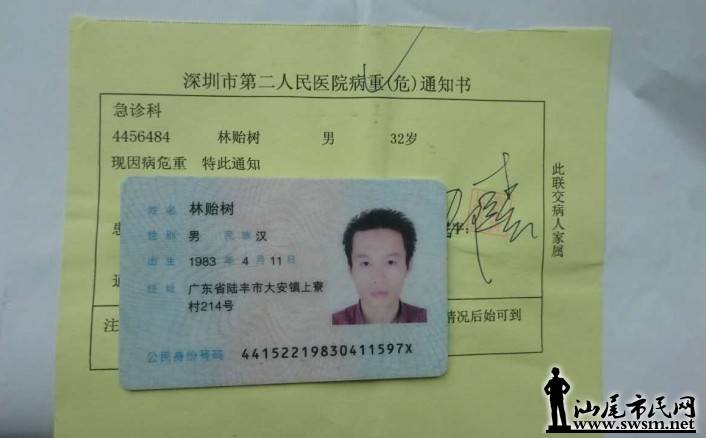 深圳市第二人民医院病重(危)通知书
急诊科
4456484 林贻树 男 32岁
现因病危重 特此通知
此联交病人家属
姓名 林贻树
性别 男 民族 汉
出生 1983 年 4 月 11 日
住址 广东省陆丰市大安镇上寮
村214号
公民身份号码 44152219830411597X
注
情况后始可到
汕尾市民网
www.swsm.net